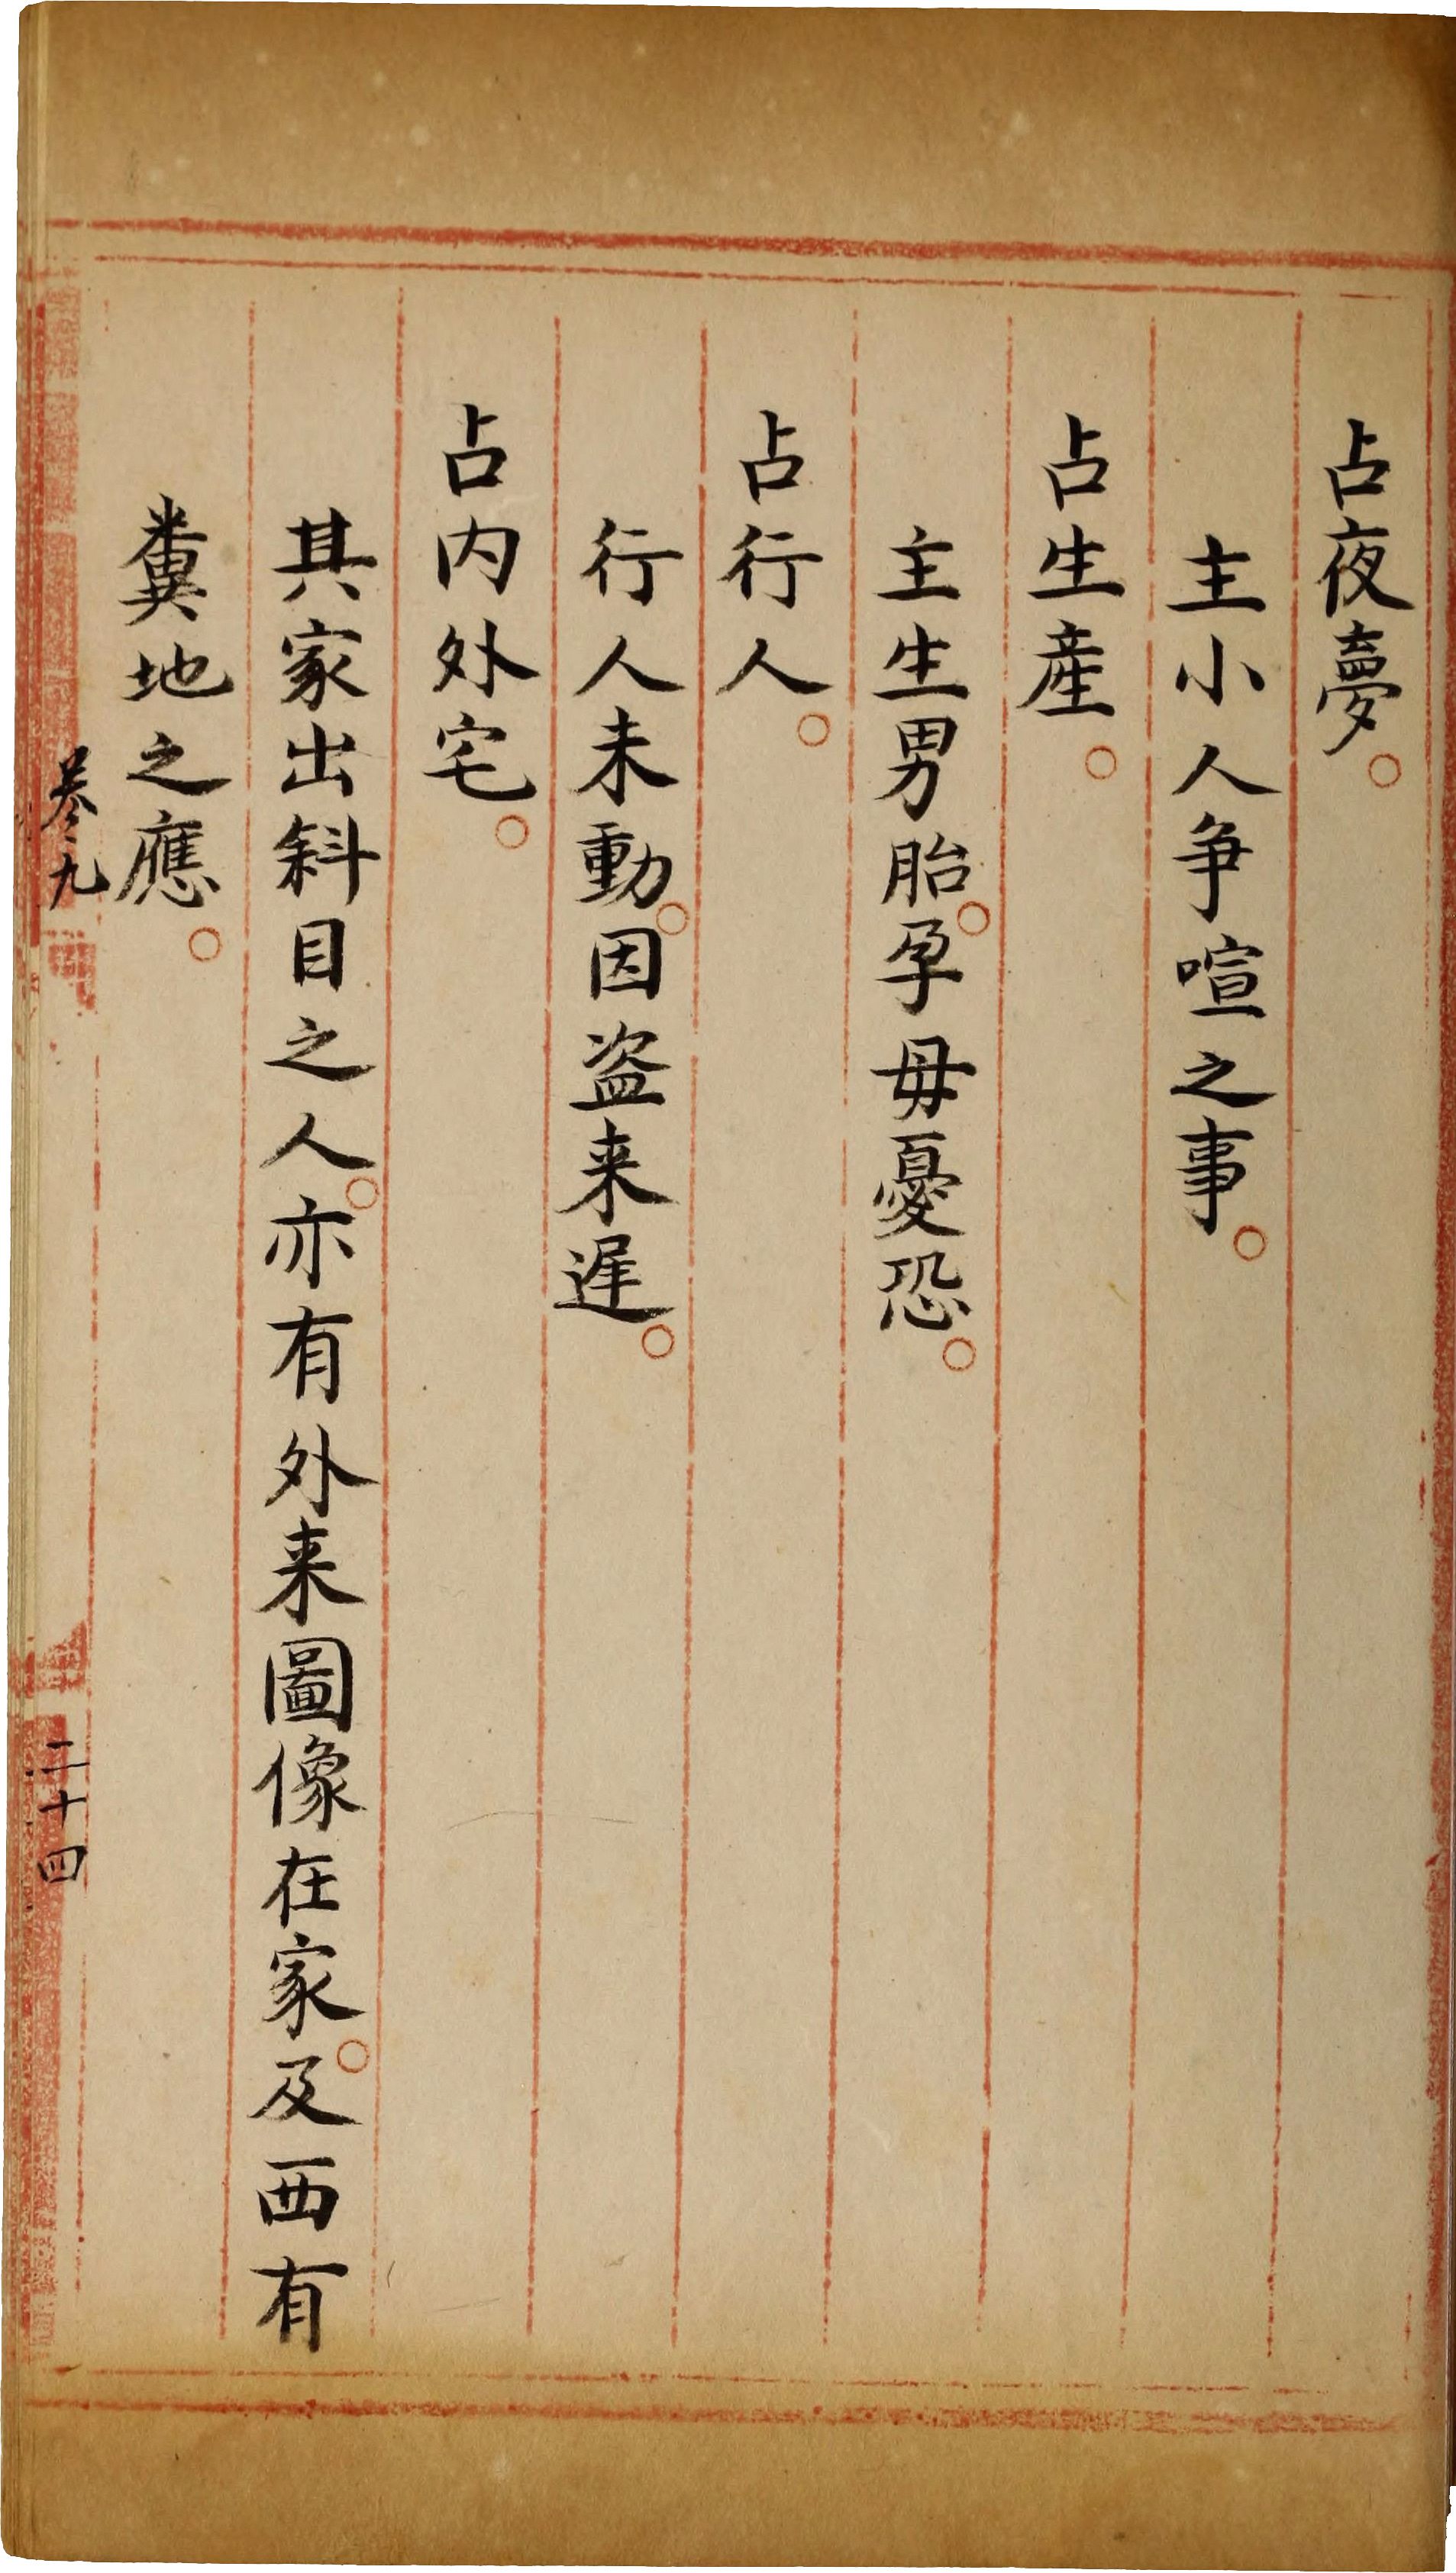 占夜夢○
主小人争喧之事○
占生産○
主生男胎○孕母憂恐○
占行人○
行人未動○因盗来遅○
占内外宅○
其家出斜目之人○亦有外来圖像在家○及西有
糞地之應○
卷九
二十四